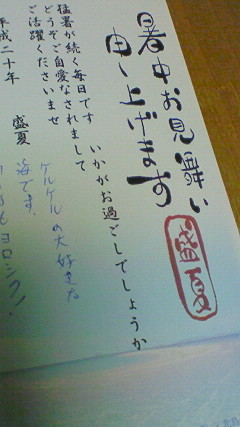 暑中お見舞い
申し上げます
盛夏
いかがお過ごしでしょうか
猛暑が続く毎日です
どうぞご自愛なされまして
ご活躍くださいませ
平成二十年 盛夏
ケルケルの大好きな
海です。
ヨロシクン!